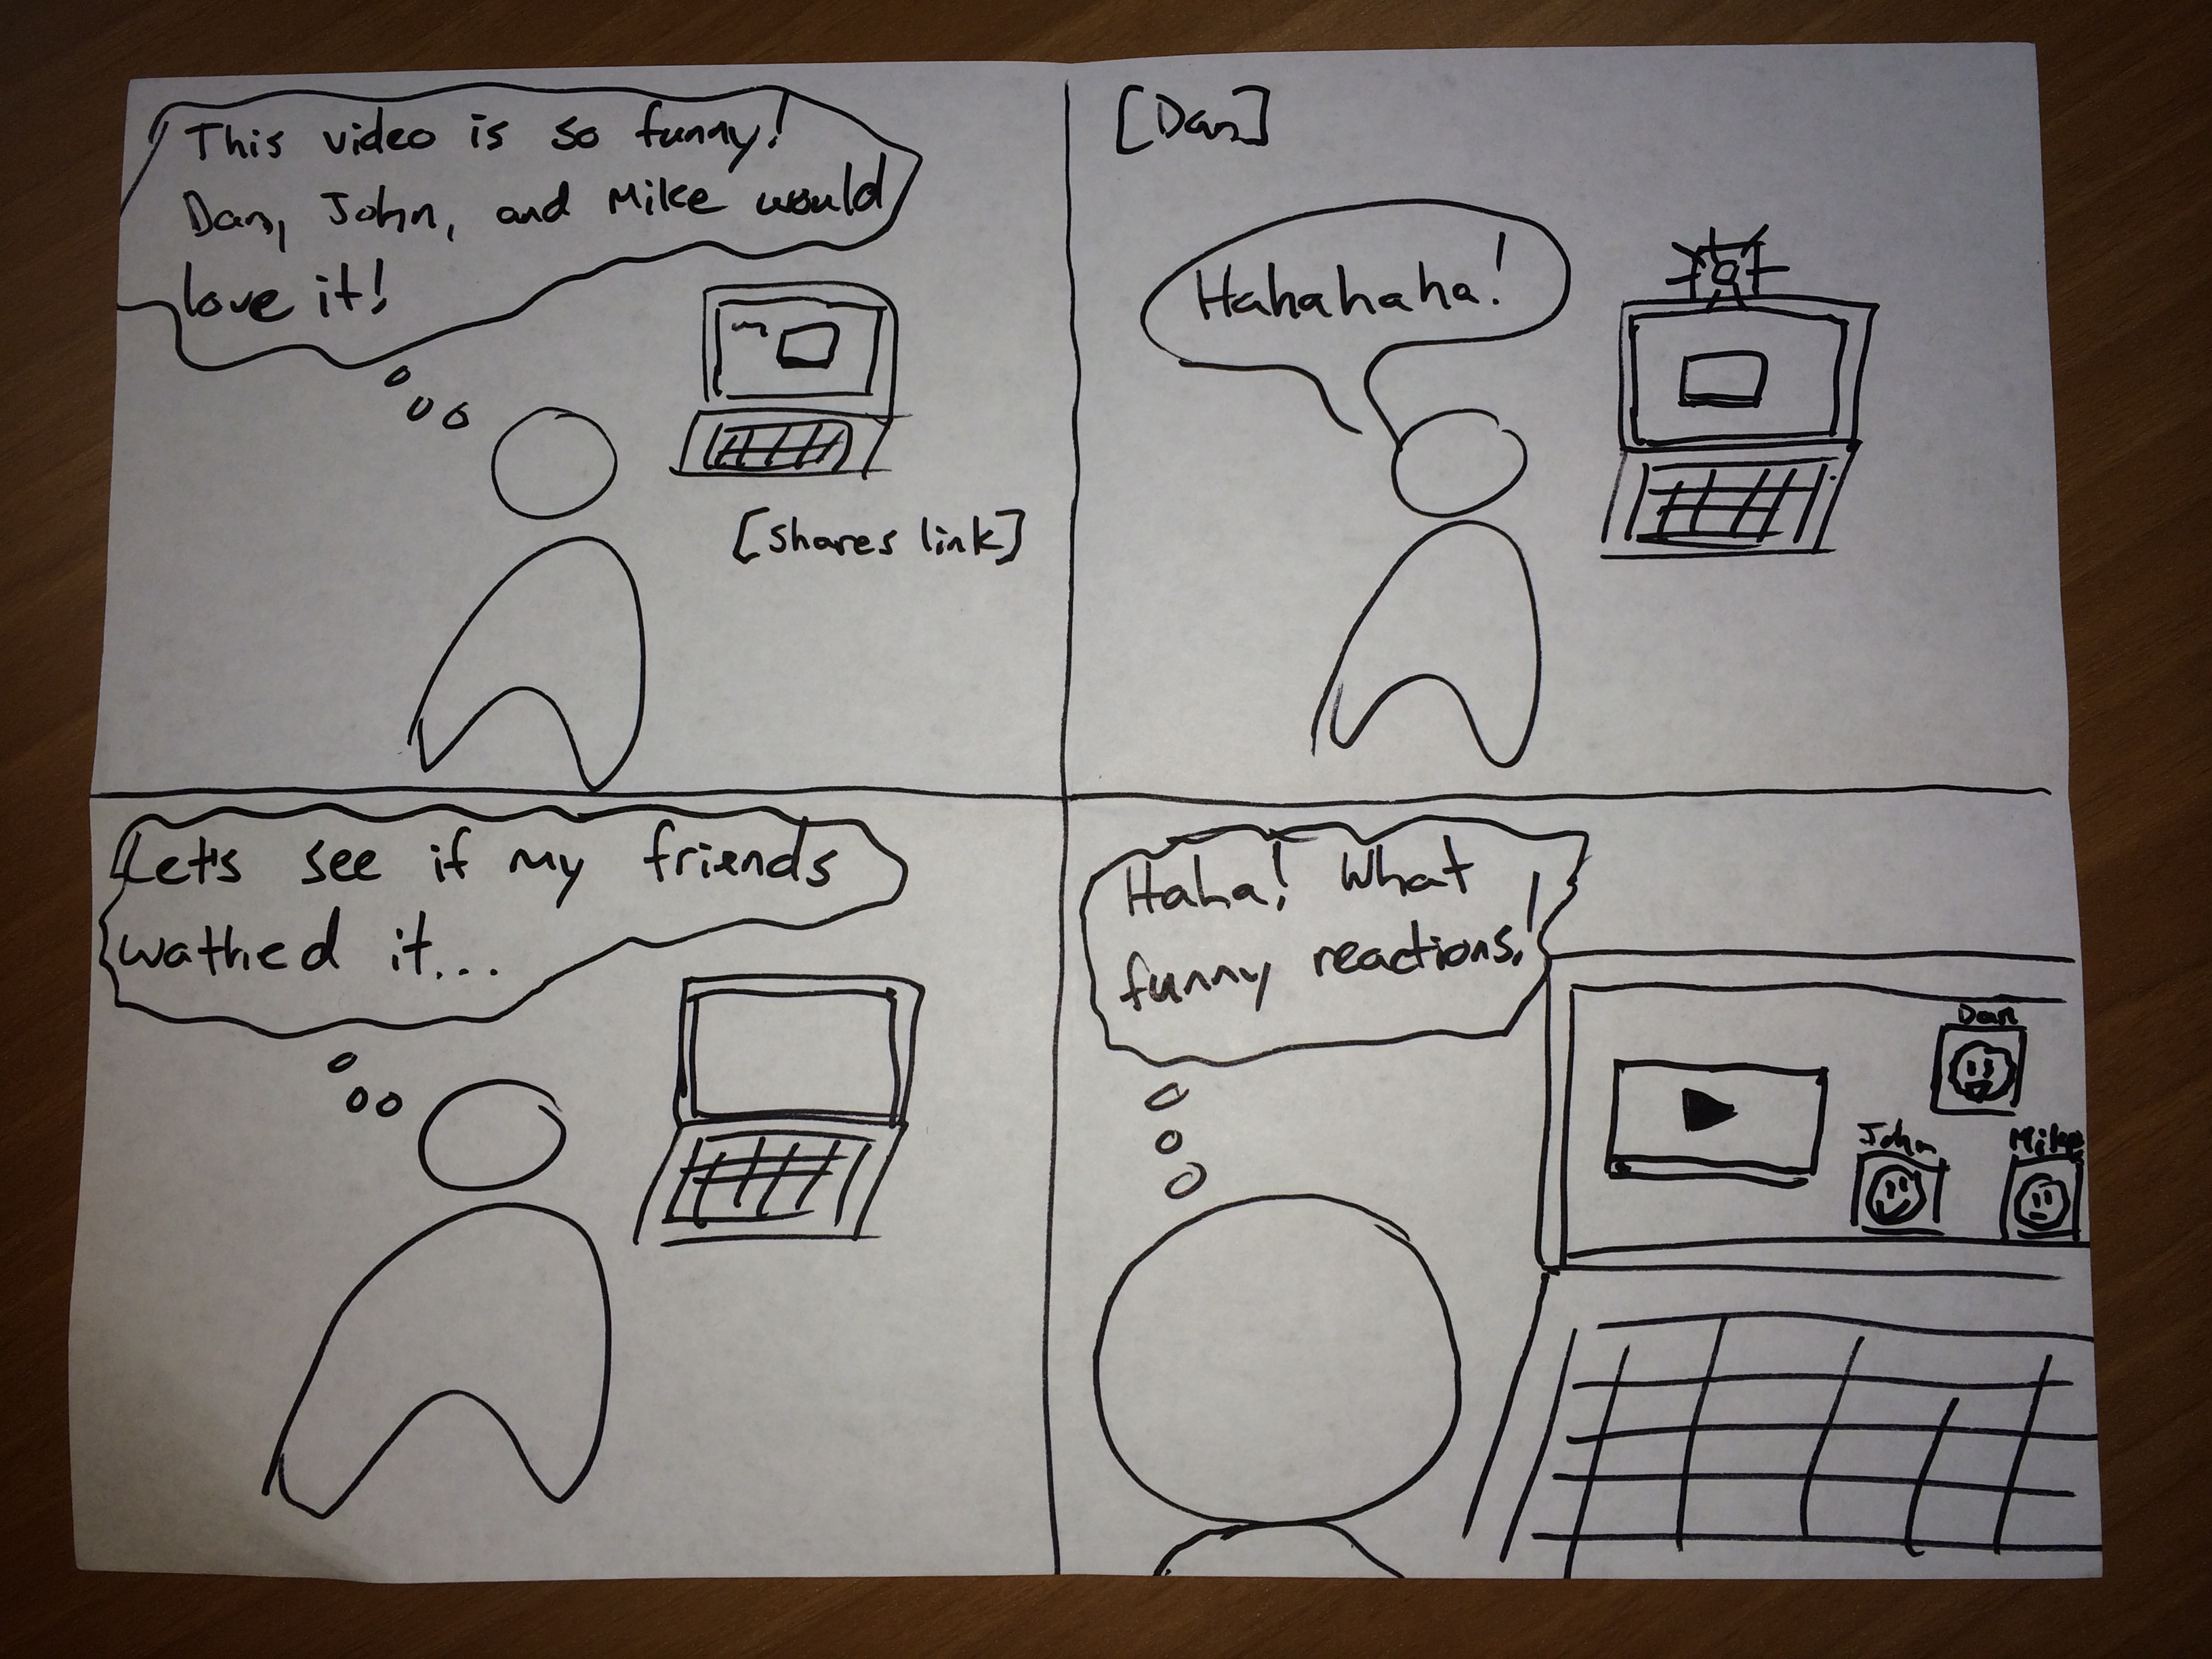 This video is so funny!
Dan, John, and Mike would
love it!
[shares link]
[Dan]
Hahahaha!
Let's see if my friends
wathed it...
Haha! What
funny reactions!
Dan
John
Mike